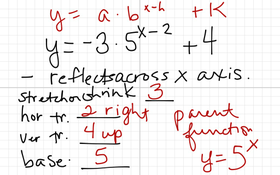 y = a · b^(x-h) + K
y = -3 · 5^(x-2) + 4
- reflects across x axis.
stretch or shrink 3
hor tr. 2 right
ver tr. 4 up
base. 5
parent
function
y = 5^x